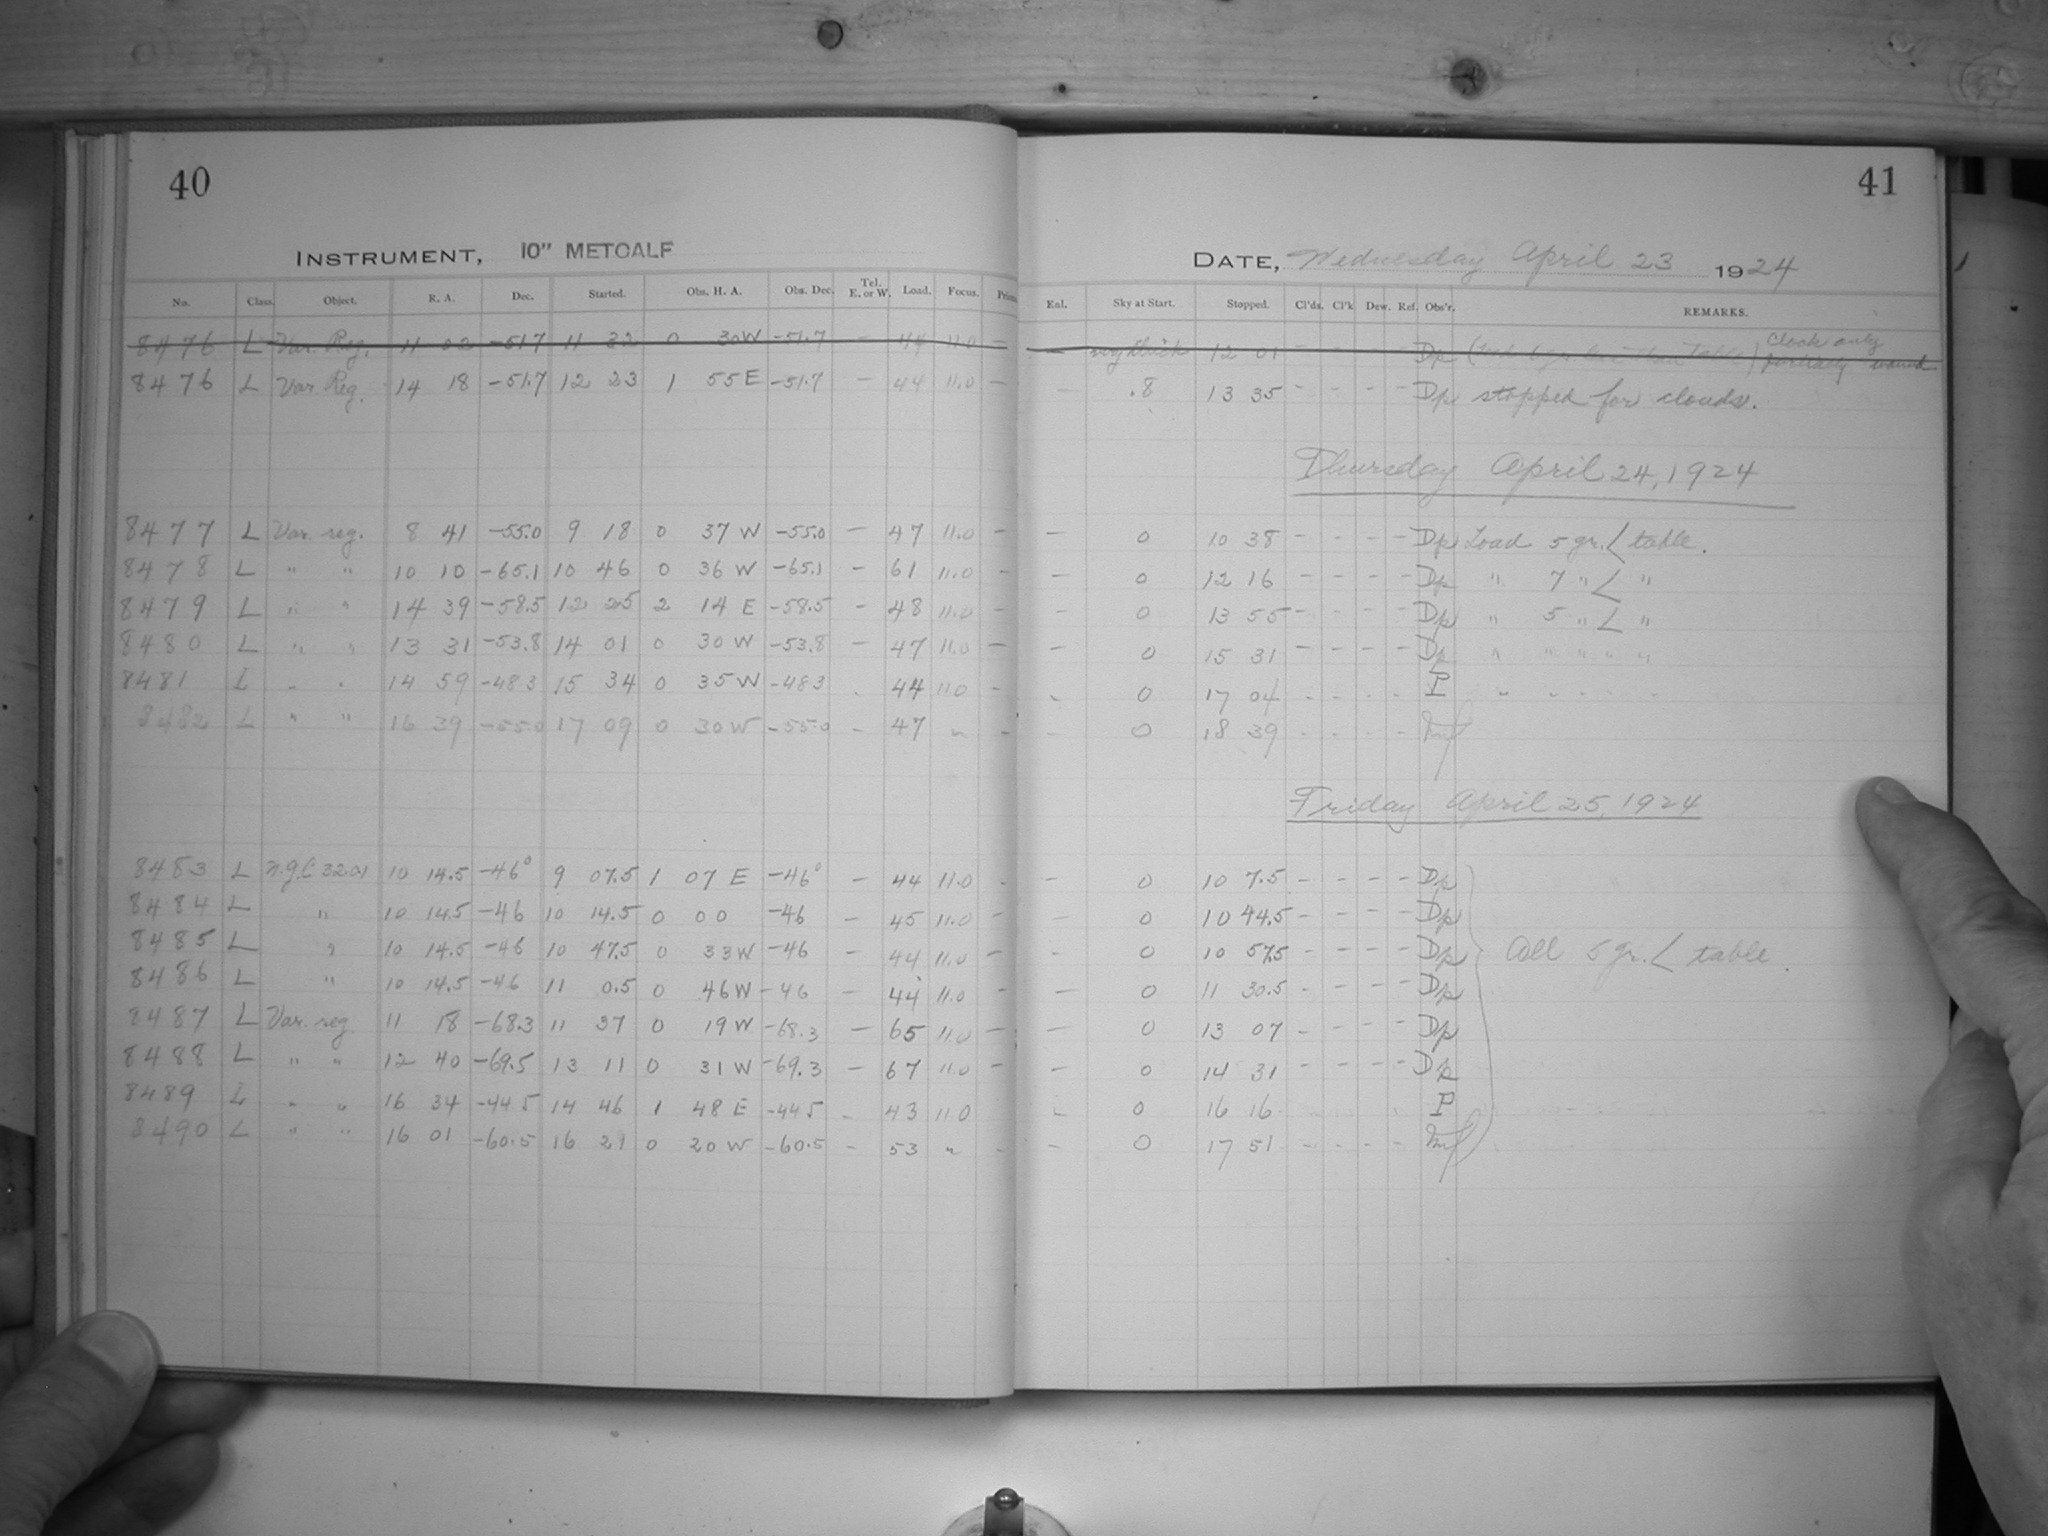 40
41
INSTRUMENT, 10" METCALF
DATE, Wednesday April 23 1924
No. Class. Object. R. A. Dec. Started. Obs. H. A. Obs. Dec. Tel. E. or W. Load. Focus. Prism Enl. Sky at Start. Stopped. Cl'ds. Cl'k Dew. Ref. Obs'r. REMARKS.
8476 L Var. Reg. 11 02 -51.7 11 32 0 30 W -51.7 - 44 11.0 - - very thick 12 01 - - - - Dp Clock only partially wound
8476 L Var. Reg. 14 18 -51.7 12 23 1 55 E -51.7 - 44 11.0 - - .8 13 35 - - - - Dp stopped for clouds.
Thursday April 24, 1924
8477 L Var. reg. 8 41 -55.0 9 18 0 37 W -55.0 - 47 11.0 - - 0 10 38 - - - - Dp Load 5 gr. < table.
8478 L " " 10 10 -65.1 10 46 0 36 W -65.1 - 61 11.0 - - 0 12 16 - - - - Dp " 7 " < "
8479 L " " 14 39 -58.5 12 25 2 14 E -58.5 - 48 11.0 - - 0 13 55 - - - - Dp " 5 " < "
8480 L " " 13 31 -53.8 14 01 0 30 W -53.8 - 47 11.0 - - 0 15 31 - - - - Dp " " " " "
8481 L " " 14 59 -48.3 15 34 0 35 W -48.3 - 44 11.0 - - 0 17 04 - - - - P " " " " "
8482 L " " 16 39 -55.0 17 09 0 30 W -55.0 - 47 " - - 0 18 39 - - - -
Friday April 25, 1924
8483 L N.G.C 3201 10 14.5 -46° 9 07.5 1 07 E -46° - 44 11.0 - - 0 10 7.5 - - - - Dp
8484 L " 10 14.5 -46 10 14.5 0 00 -46 - 45 11.0 - - 0 10 44.5 - - - - Dp
8485 L " 10 14.5 -46 10 47.5 0 33 W -46 - 44 11.0 - - 0 10 57.5 - - - - Dp All 5 gr. < table.
8486 L " 10 14.5 -46 11 0.5 0 46 W -46 - 44 11.0 - - 0 11 30.5 - - - - Dp
8487 L Var. reg 11 18 -68.3 11 37 0 19 W -68.3 - 65 11.0 - - 0 13 07 - - - - Dp
8488 L " " 12 40 -69.5 13 11 0 31 W -69.3 - 67 11.0 - - 0 14 31 - - - - Dp
8489 L " " 16 34 -44.5 14 46 1 48 E -44.5 - 43 11.0 - 0 16 16 P
8490 L " " 16 01 -60.5 16 21 0 20 W -60.5 - 53 " - - 0 17 51 - - - -